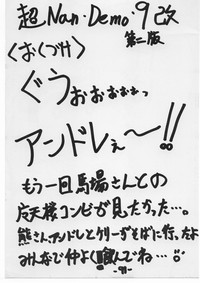 超Nan・Demo・9改
第二版
<おくづけ>
ぐうぉぉぉぉぉっ
アンドレぇ〜!!
もう一回馬場さんとの
応天様コンビが見たかった…。
熊さん、アンドレとケリーがそばに行ったよ
みんなで仲よく飲んでね…。